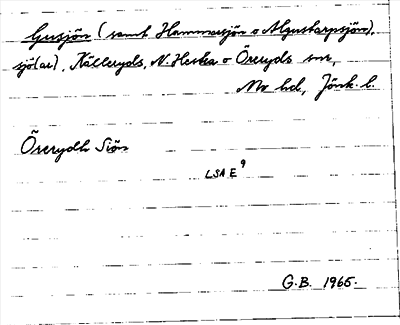 Gusjön (samt Hammarsjön o Algustorpsjön),
sjö(ar), Källeryds, N. Hestra o Öreryds snr,
Mo hd, Jönk. l.
Örerydh Siön
LSA E⁹
G.B. 1965.